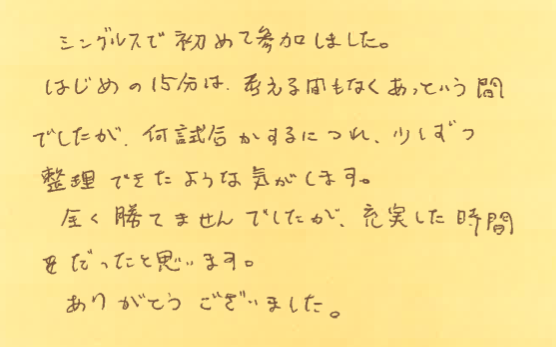 シングルスで初めて参加しました。
はじめの15分は、考える間もなくあっという間
でしたが、何試合かするにつれ、少しずつ
整理できたような気がします。
全く勝てませんでしたが、充実した時間
だったと思います。
ありがとうございました。